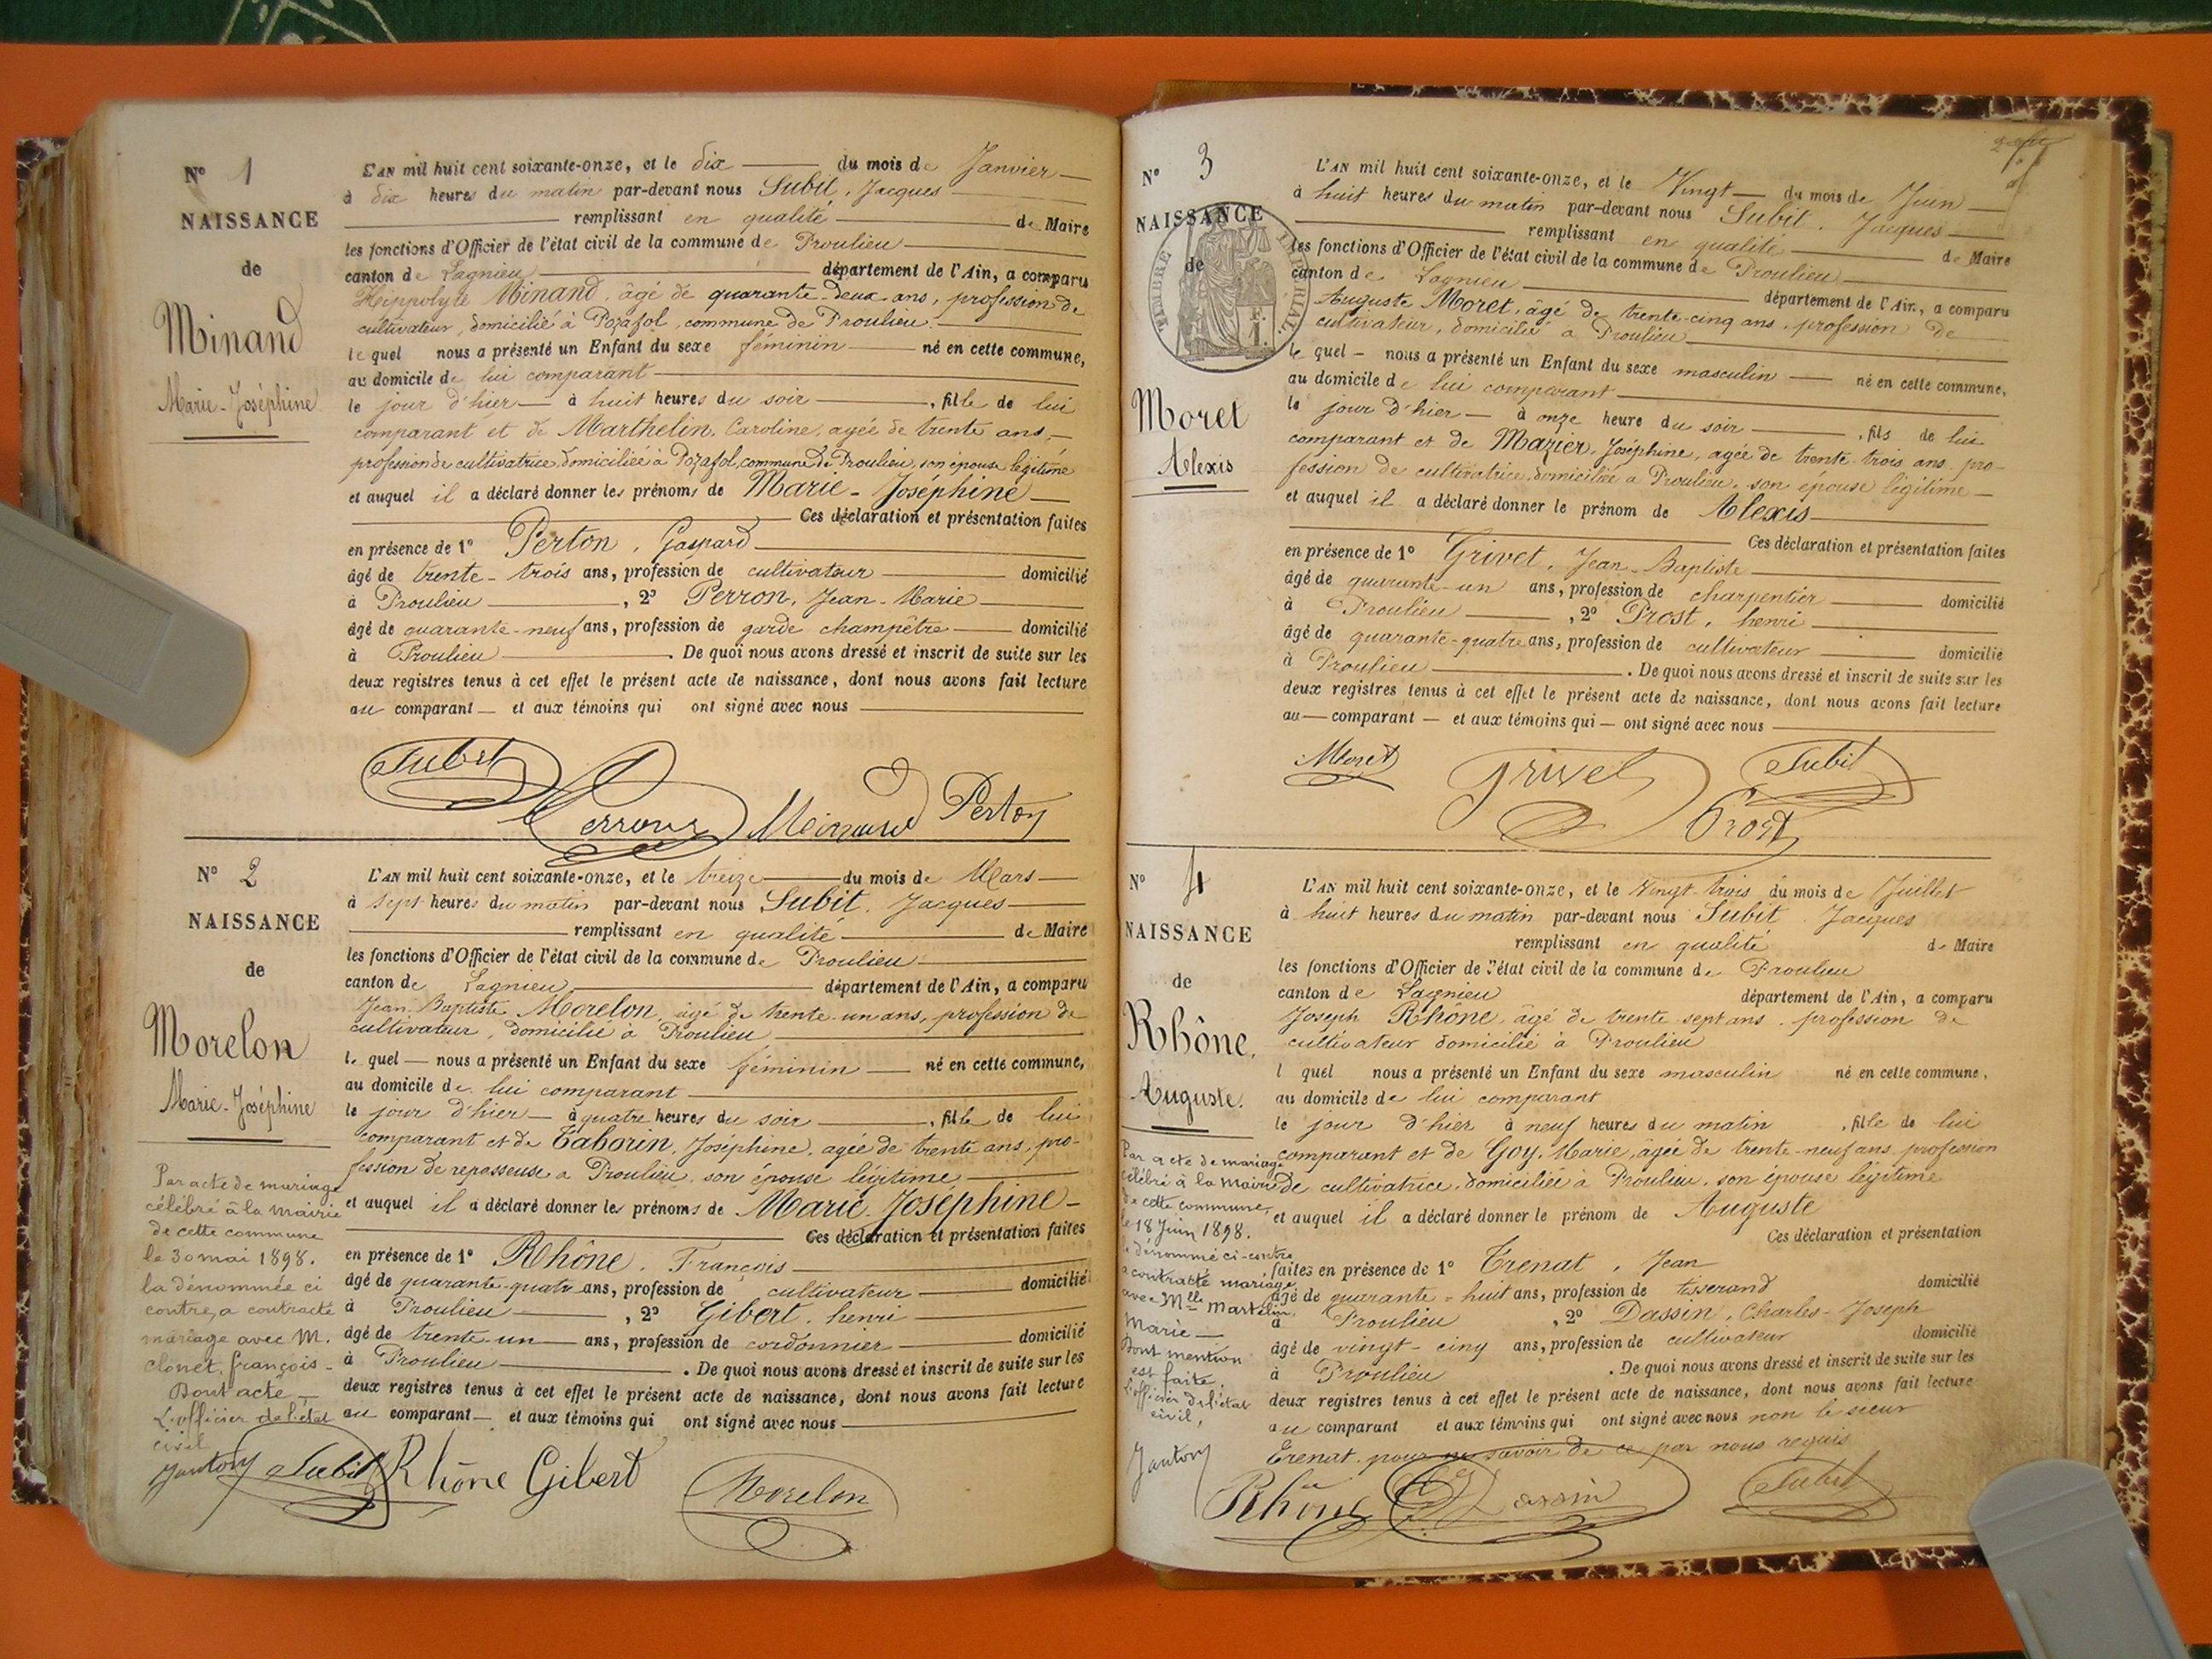 N° 1
NAISSANCE
de
Minand
Marie-Joséphine
L'AN mil huit cent soixante-onze, et le dix du mois de Janvier
à dix heures du matin par-devant nous Subit, Jacques
remplissant en qualité de Maire
les fonctions d'Officier de l'état civil de la commune de Proulieu
canton de Lagnieu département de l'Ain, a comparu
Hippolyte Minand, âgé de quarante-deux ans, profession de
cultivateur, domicilié à Pozafol, commune de Proulieu.
lequel nous a présenté un Enfant du sexe féminin né en cette commune,
au domicile de lui comparant
le jour d'hier à huit heures du soir, fille de lui
comparant et de Marthelin, Caroline, agée de trente ans,
profession de cultivatrice, domiciliée à Pozafol, commune de Proulieu, son épouse légitime
et auquel il a déclaré donner les prénoms de Marie-Joséphine
Ces déclaration et présentation faites
en présence de 1° Perton, Gaspard
âgé de trente-trois ans, profession de cultivateur domicilié
à Proulieu, 2° Perron, Jean-Marie
âgé de quarante-neuf ans, profession de garde champêtre domicilié
à Proulieu. De quoi nous avons dressé et inscrit de suite sur les
deux registres tenus à cet effet le présent acte de naissance, dont nous avons fait lecture
au comparant et aux témoins qui ont signé avec nous
Subit
Perron Minand Perton
N° 2
NAISSANCE
de
Morelon
Marie-Joséphine
Par acte de mariage
célébré à la mairie
de cette commune
le 30 mai 1898.
la dénommée ci
contre, a contracté
mariage avec M.
clonet, françois-
Dont acte
L'officier de l'état
civil
L'AN mil huit cent soixante-onze, et le treize du mois de Mars
à sept heures du matin par-devant nous Subit, Jacques
remplissant en qualité de Maire
les fonctions d'Officier de l'état civil de la commune de Proulieu
canton de Lagnieu département de l'Ain, a comparu
Jean-Baptiste Morelon, âgé de trente-un ans, profession de
cultivateur, domicilié à Proulieu
lequel nous a présenté un Enfant du sexe féminin né en cette commune,
au domicile de lui comparant
le jour d'hier à quatre heures du soir, fille de lui
comparant et de Taborin, Joséphine, agée de trente ans, pro-
fession de repasseuse a Proulieu, son épouse légitime
et auquel il a déclaré donner les prénoms de Marie-Joséphine
Ces déclaration et présentation faites
en présence de 1° Rhône, François
âgé de quarante-quatre ans, profession de cultivateur domicilié
à Proulieu, 2° Gibert, henri
âgé de trente-un ans, profession de cordonnier domicilié
à Proulieu. De quoi nous avons dressé et inscrit de suite sur les
deux registres tenus à cet effet le présent acte de naissance, dont nous avons fait lecture
au comparant et aux témoins qui ont signé avec nous
Subit Rhône Gibert Morelon
N° 3
NAISSANCE
de
TIMBRE IMPÉRIAL
Moret
Alexis
L'AN mil huit cent soixante-onze, et le Vingt du mois de Juin
à huit heures du matin par-devant nous Subit, Jacques
remplissant en qualité de Maire
les fonctions d'Officier de l'état civil de la commune de Proulieu
canton de Lagnieu département de l'Ain, a comparu
Auguste Moret, âgé de trente-cinq ans, profession de
cultivateur, domicilié à Proulieu
lequel nous a présenté un Enfant du sexe masculin né en cette commune,
au domicile de lui comparant
le jour d'hier à onze heure du soir, fils de lui
comparant et de Mazier, Joséphine, agée de trente-trois ans, pro-
fession de cultivatrice, domiciliée a Proulieu, son épouse légitime
et auquel il a déclaré donner le prénom de Alexis
Ces déclaration et présentation faites
en présence de 1° Grivet, Jean-Baptiste
âgé de quarante-un ans, profession de charpentier domicilié
à Proulieu, 2° Prost, henri
âgé de quarante-quatre ans, profession de cultivateur domicilié
à Proulieu. De quoi nous avons dressé et inscrit de suite sur les
deux registres tenus à cet effet le présent acte de naissance, dont nous avons fait lecture
au comparant et aux témoins qui ont signé avec nous
Moret Grivet Subit
Prost
N° 4
NAISSANCE
de
Rhône,
Auguste.
Par acte de mariage
célébré à la mairie
de cette commune,
le 18 Juin 1898.
le dénommé ci-contre
a contracté mariage
avec Mlle Martelin,
Marie
Dont mention
est faite.
L'officier de l'état
civil,
L'AN mil huit cent soixante-onze, et le Vingt-trois du mois de Juillet
à huit heures du matin par-devant nous Subit Jacques
remplissant en qualité de Maire
les fonctions d'Officier de l'état civil de la commune de Proulieu
canton de Lagnieu département de l'Ain, a comparu
Joseph Rhône, âgé de trente-sept ans, profession de
cultivateur domicilié à Proulieu
l quel nous a présenté un Enfant du sexe masculin né en cette commune,
au domicile de lui comparant
le jour d'hier à neuf heures du matin, fils de lui
comparant et de Goy, Marie, âgée de trente-neuf ans, profession
de cultivatrice, domiciliée à Proulieu, son épouse légitime
et auquel il a déclaré donner le prénom de Auguste
Ces déclaration et présentation
faites en présence de 1° Trenat, Jean
âgé de quarante-huit ans, profession de tisserand domicilié
à Proulieu, 2° Dassin, Charles-Joseph
âgé de vingt-cinq ans, profession de cultivateur domicilié
à Proulieu. De quoi nous avons dressé et inscrit de suite sur les
deux registres tenus à cet effet le présent acte de naissance, dont nous avons fait lecture
au comparant et aux témoins qui ont signé avec nous non le sieur
Trenat, pour ne savoir de ce par nous requis
Rhône Dassin Subit